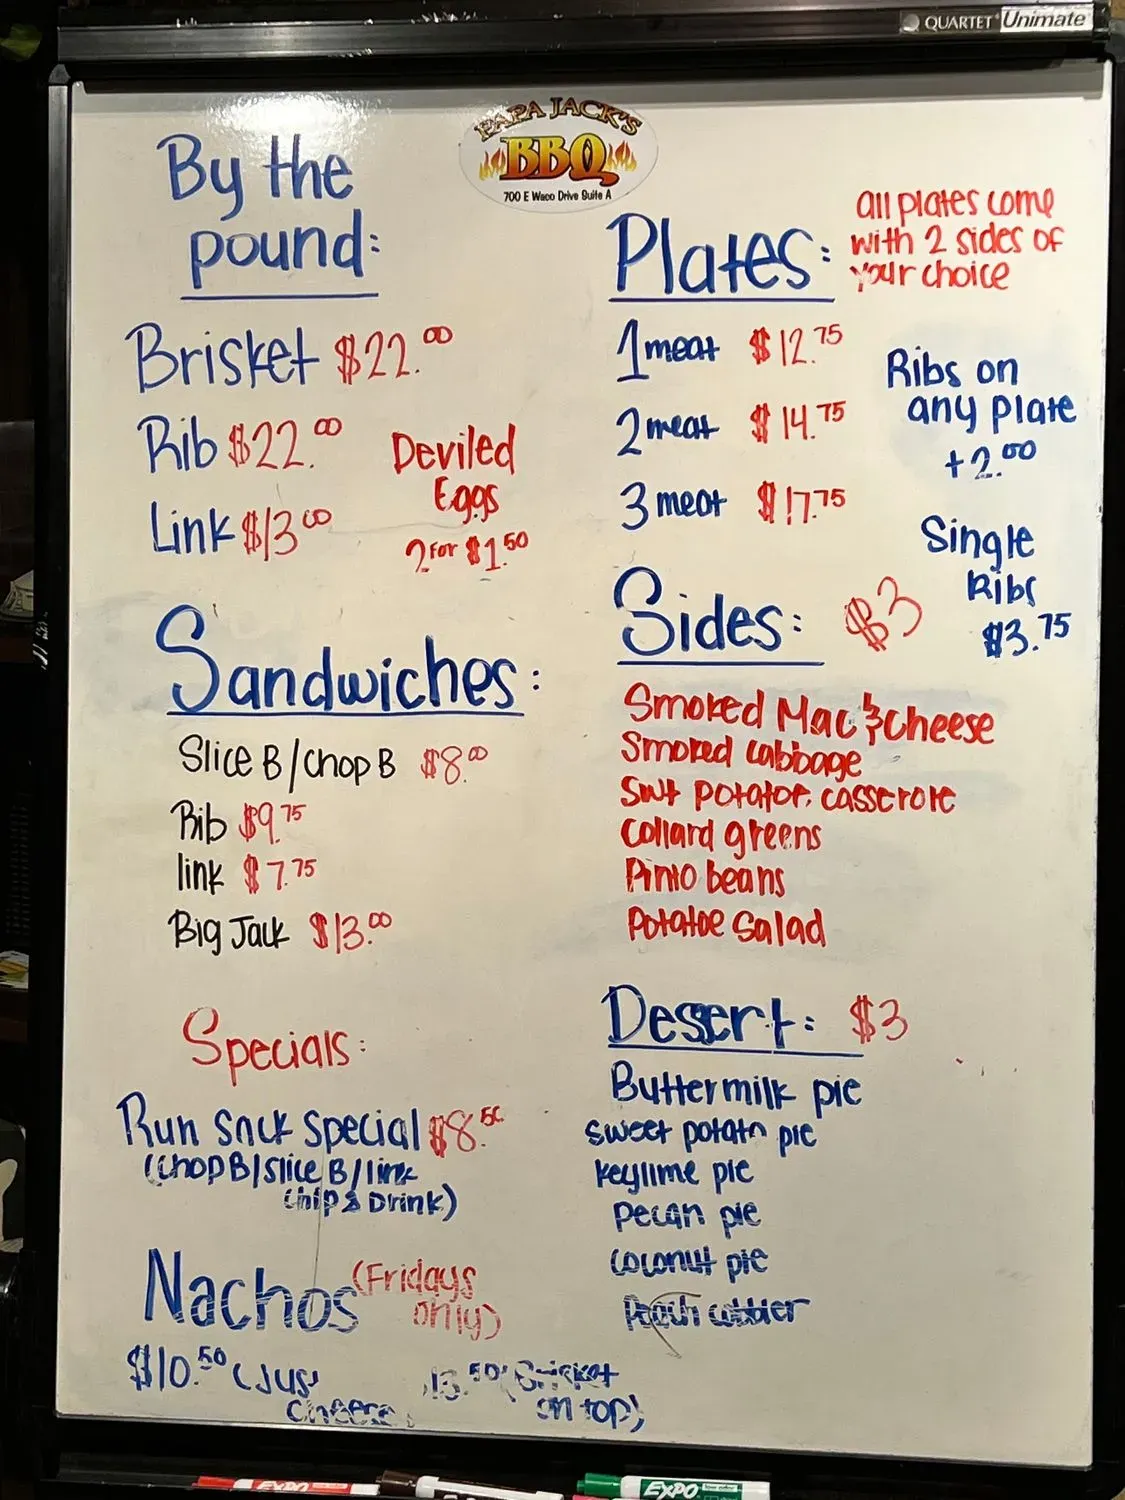 QUARTET Unimate
PAPA JACK'S
BBQ
700 E Waco Drive Suite A
By the
pound:
Brisket $22.00
Rib $22.00
Link $13.00
Deviled
Eggs
2 for $1.50
Sandwiches:
Slice B/chop B $8.00
Rib $9.75
link $7.75
Big Jack $13.00
Specials:
Run Sack special $8.50
(chop B/slice B/link
chip & Drink)
Nachos (Fridays
only)
$10.50 (Just
cheese)
13.50 (Brisket
on top)
Plates:
all plates come
with 2 sides of
your choice
1 meat $12.75
2 meat $14.75
3 meat $17.75
Ribs on
any plate
+2.00
Single
Ribs
$3.75
Sides: $3
Smoked Mac & cheese
Smoked cabbage
Swt potatoe casserole
collard greens
Pinto beans
Potatoe Salad
Desert: $3
Buttermilk pie
sweet potato pie
keylime pie
pecan pie
coconut pie
Peach cobbler
EXPO
EXPO